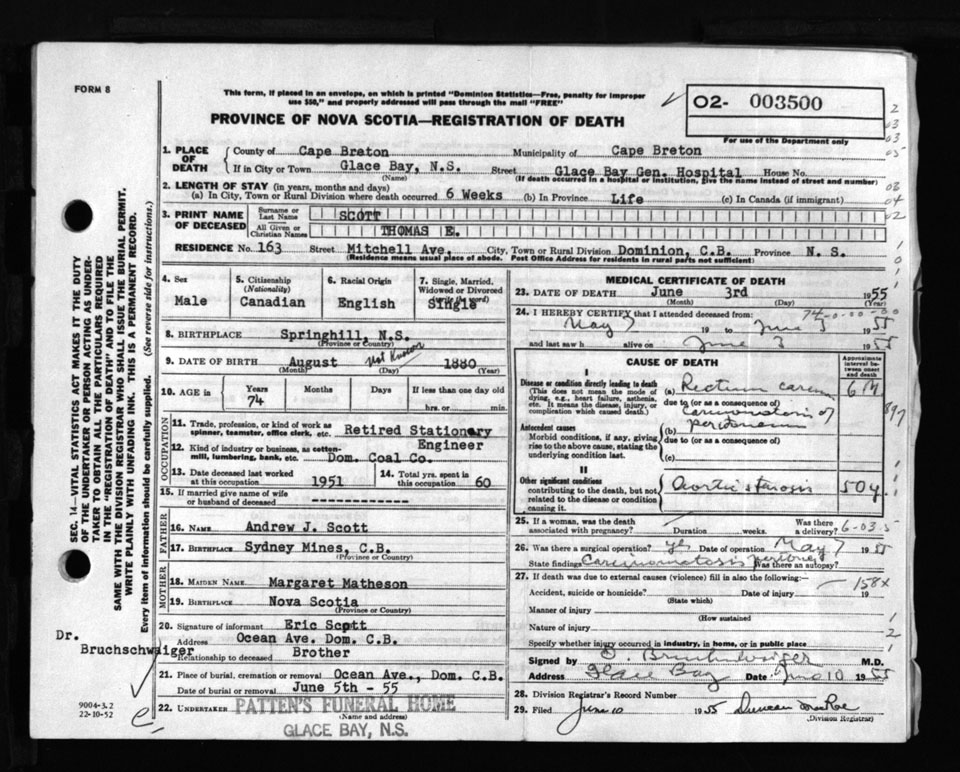 FORM 8
This form, if placed in an envelope, on which is printed "Dominion Statistics—Free, penalty for improper
use $50," and properly addressed will pass through the mail "FREE"
PROVINCE OF NOVA SCOTIA—REGISTRATION OF DEATH
02- 003500
For use of the Department only
2
03
03
05
03
04
02
1. PLACE OF DEATH
County of Cape Breton Municipality of Cape Breton
If in City or Town Glace Bay, N.S. Street Glace Bay Gen. Hospital House No.
(Name) (If death occurred in a hospital or institution, give the name instead of street and number)
2. LENGTH OF STAY (in years, months and days)
(a) In City, Town or Rural Division where death occurred 6 Weeks (b) In Province Life (c) In Canada (if immigrant)
3. PRINT NAME OF DECEASED
Surname or Last Name SCOTT
All Given or Christian Names THOMAS E.
RESIDENCE No. 163 Street Mitchell Ave. City, Town or Rural Division Dominion, C.B. Province N. S.
(Residence means usual place of abode. Post Office Address for residents in rural parts not sufficient)
4. Sex
Male
5. Citizenship
(Nationality)
Canadian
6. Racial Origin
English
7. Single, Married,
Widowed or Divorced
(write the word)
Single
8. BIRTHPLACE Springhill, N.S.
(Province or Country)
9. DATE OF BIRTH August Not Known 1880
(Month) (Day)
10. AGE in
Years Months Days If less than one day old
74 hrs. or min.
OCCUPATION
11. Trade, profession, or kind of work as
spinner, teamster, office clerk, etc. Retired Stationary
Engineer
12. Kind of industry or business, as cotton-
mill, lumbering, bank, etc. Dom. Coal Co.
13. Date deceased last worked
at this occupation 1951
14. Total yrs. spent in
this occupation 60
15. If married give name of wife
or husband of deceased --------------
FATHER
16. NAME Andrew J. Scott
17. BIRTHPLACE Sydney Mines, C.B.
(Province or Country)
MOTHER
18. MAIDEN NAME Margaret Matheson
19. BIRTHPLACE Nova Scotia
(Province or Country)
20. Signature of informant Eric Scott
Address Ocean Ave. Dom. C.B.
Relationship to deceased Brother
21. Place of burial, cremation or removal Ocean Ave., Dom. C.B.
Date of burial or removal June 5th - 55
22. UNDERTAKER PATTEN'S FUNERAL HOME
(Name and address)
GLACE BAY, N.S.
MEDICAL CERTIFICATE OF DEATH
23. DATE OF DEATH June 3rd 1955
(Month) (Day)
24. I HEREBY CERTIFY that I attended deceased from: 74-0-00-00
May 7 19 to June 3 1955
and last saw h alive on June 3 1955
CAUSE OF DEATH
Approximate
interval be-
tween onset
and death
I
Disease or condition directly leading to death
(This does not mean the mode of
dying, e.g., heart failure, asthenia,
etc. It means the disease, injury, or
complication which caused death.)
(a) Rectum carcin 6 M
due to (or as a consequence of)
Carcinomatosis of
(b) peritoneum
due to (or as a consequence of)
(c)
Antecedent causes
Morbid conditions, if any, giving
rise to the above cause, stating the
underlying condition last.
II
Other significant conditions
contributing to the death, but not
related to the disease or condition
causing it.
Aortic stenosis 50 y.
25. If a woman, was the death
associated with pregnancy? Duration weeks. Was there
a delivery? 6-03.5
26. Was there a surgical operation? yes Date of operation May 7 1955
State findings Carcinomatosis peritoney Was there an autopsy?
27. If death was due to external causes (violence) fill in also the following:—
158x
Accident, suicide or homicide? Date 19
(State which)
Manner of injury
(How sustained)
Nature of injury
Specify whether injury occurred in industry, in home, or in public place
Signed by M.D.
Address Glace Bay Date June 10 1955
28. Division Registrar's Record Number
29. Filed June 10 1955 Duncan MacRae
(Division Registrar)
SEC. 14—VITAL STATISTICS ACT MAKES IT THE DUTY
OF THE UNDERTAKER OR PERSON ACTING AS UNDER-
TAKER TO OBTAIN ALL THE PARTICULARS REQUIRED
IN THE "REGISTRATION OF DEATH" AND TO FILE THE
SAME WITH THE DIVISION REGISTRAR WHO SHALL ISSUE THE BURIAL PERMIT.
WRITE PLAINLY WITH UNFADING INK. THIS IS A PERMANENT RECORD.
Every item of information should be carefully supplied. (See reverse side for instructions.)
Dr.
Bruchschwaiger
9004-3.2
22-10-52